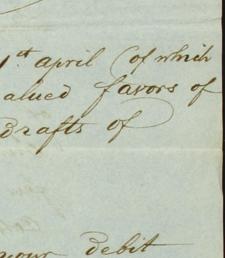 1st april (of which
alued favors of
drafts of
your debit